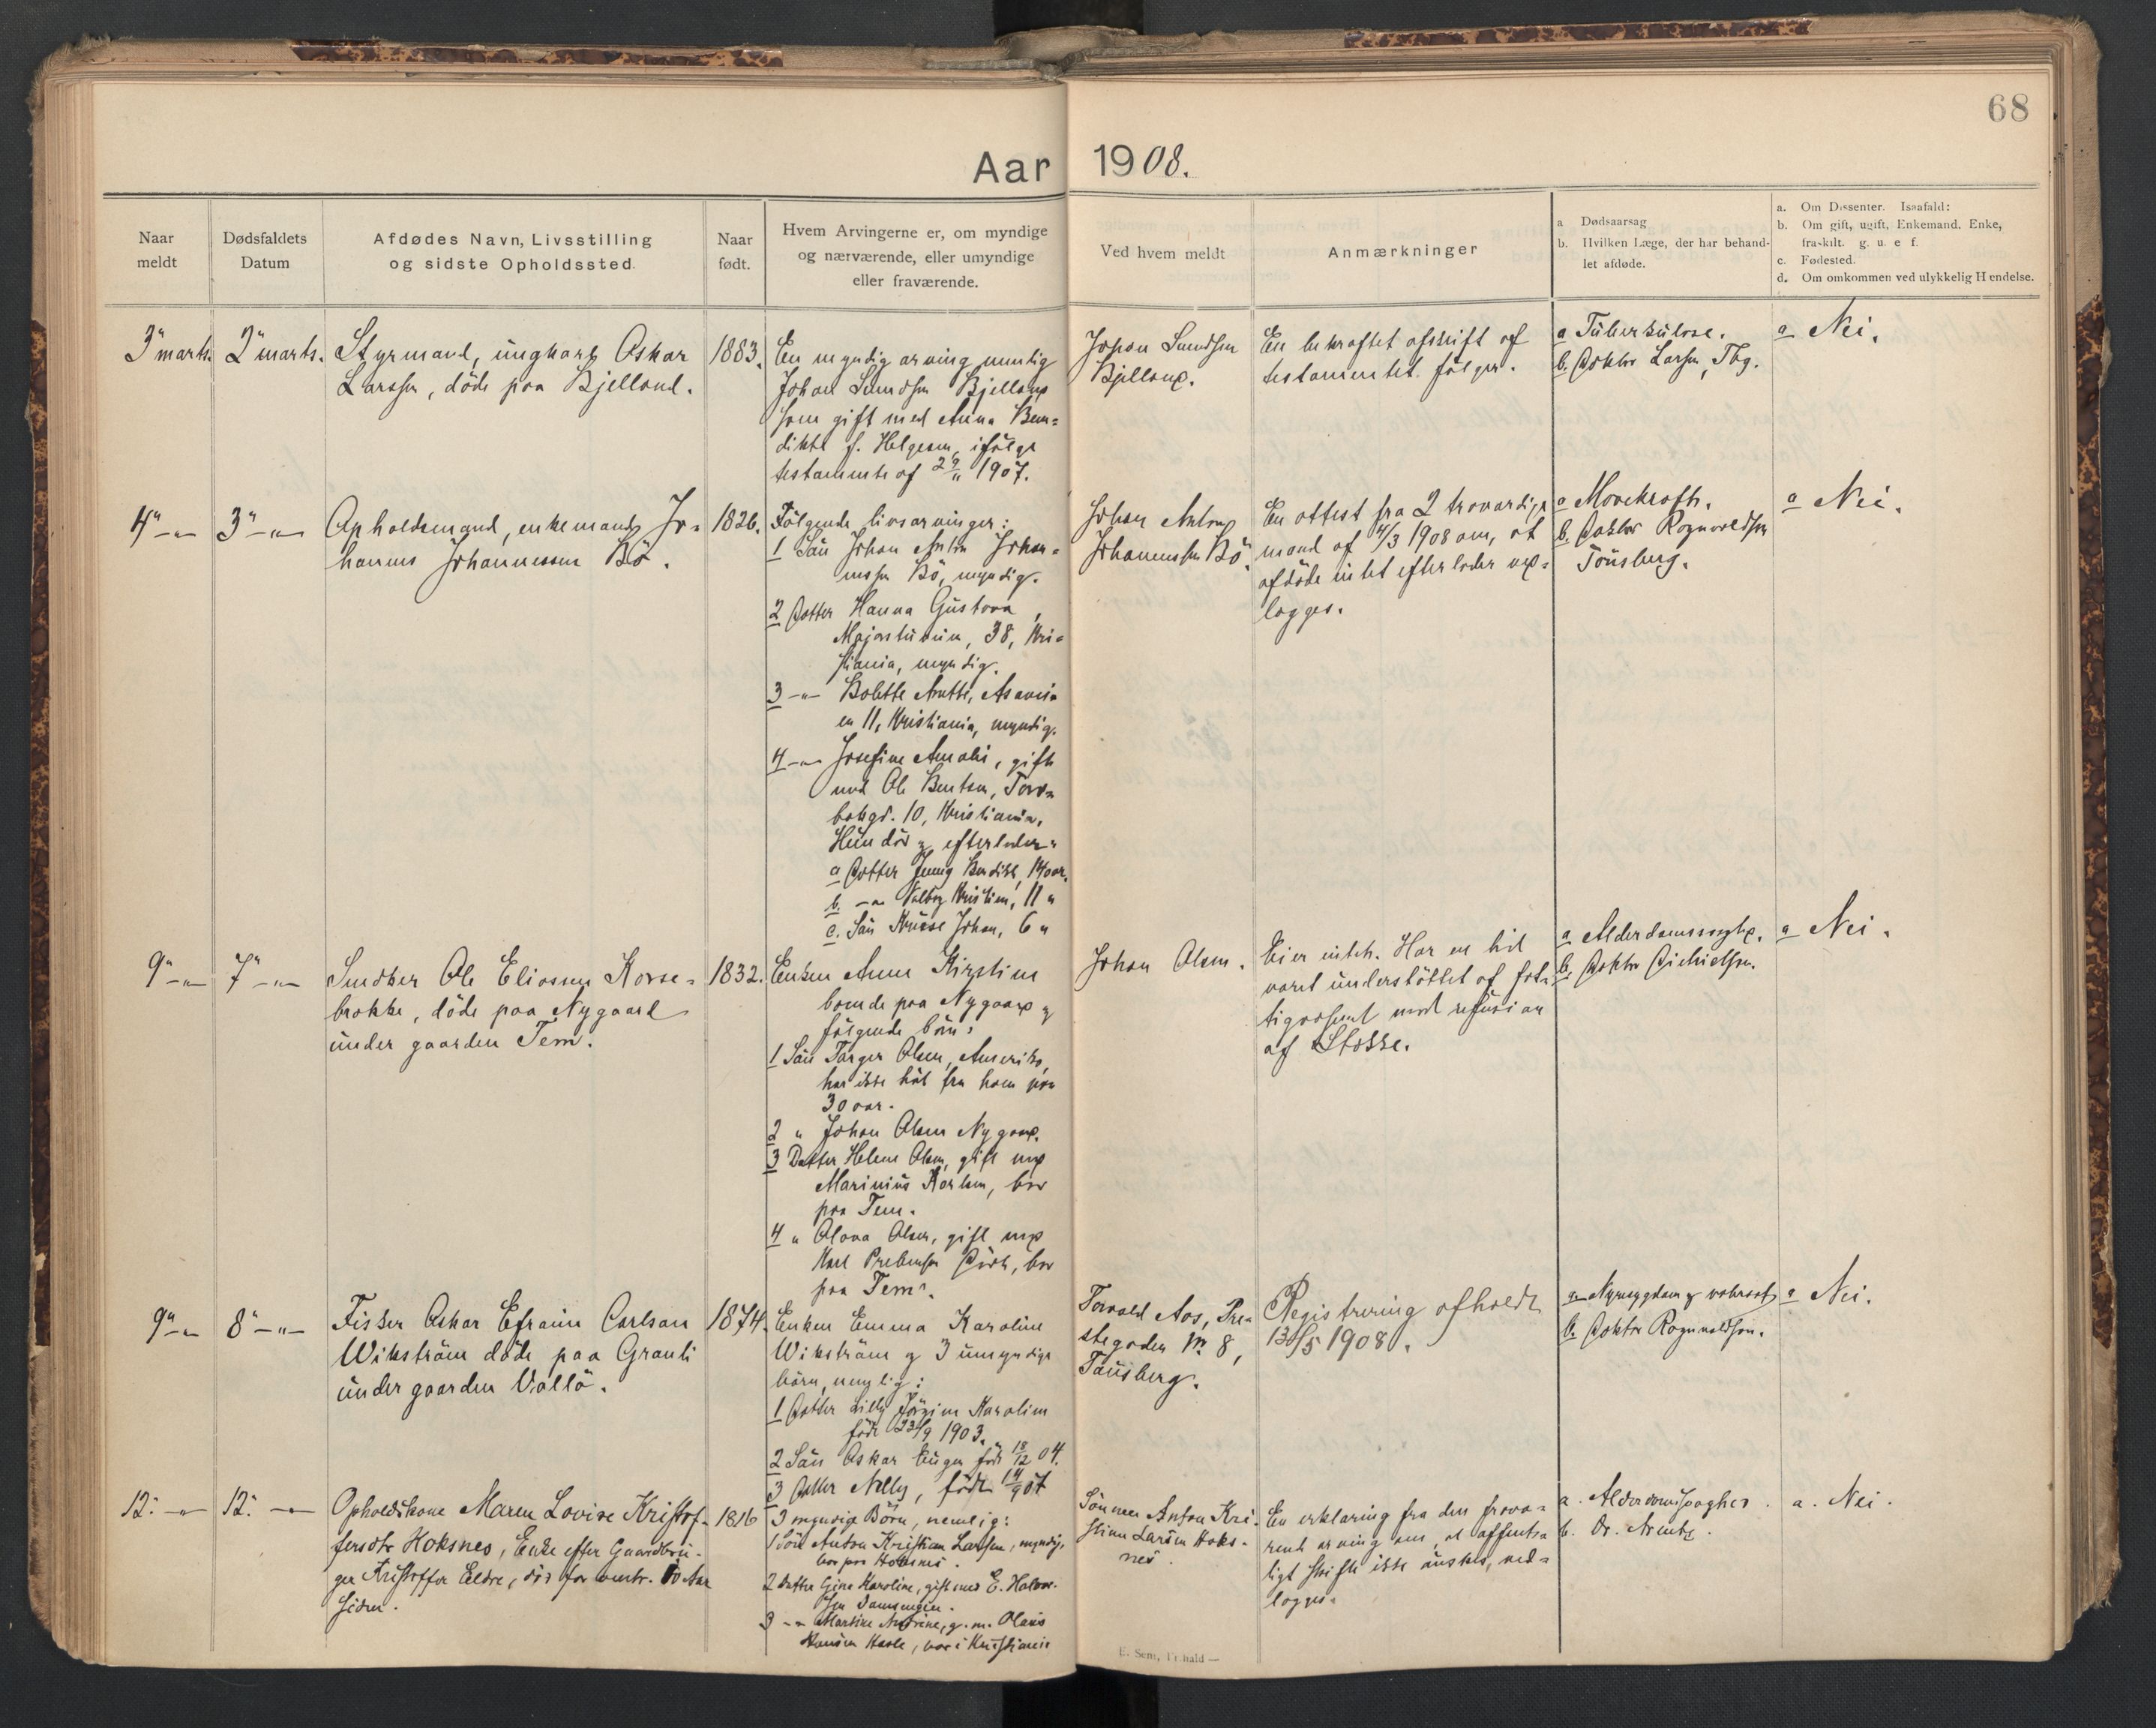 68
Aar 1908.
Naar meldt
Dødsfaldets Datum
Afdødes Navn, Livsstilling og sidste Opholdssted.
Naar født.
Hvem Arvingerne er, om myndige og nærværende, eller umyndige eller fraværende.
Ved hvem meldt
Anmærkninger
a Dødsaarsag
b. Hvilken Læge, der har behandlet afdøde.
a. Om Dissenter. Isaafald:
b. Om gift, ugift, Enkemand. Enke, fraskilt. g. u. e f.
c. Fødested.
d. Om omkommen ved ulykkelig Hendelse.
3" marts.
2" marts.
Styrmand, ungkarl Oskar
Larssen, döde paa Bjelland.
1883.
En myndig arving nemlig
Johan Bjelland
som gift med Anna Ben=
dikte f. Helgesen, ifölge
testamente af 1907.
Johan
Bjelland.
En bekræftet afskrift af
testamentet fölger.
a Tuberkulose.
b. Doktor Larsen, Tbg.
a Nei.
4"-"-
3"-"-
Opholdsmand, enkemand Jo=
hannes Johannessen Bö.
1826.
Fölgende livsarvinger:
1 Sön Johan Anton Johan=
nessen Bö, myndig.
2 Datter Hanna Gustava,
Majorstuveien, 38, Kri=
stiania, myndig.
3 -"- Bolette
11, Kristiania, myndig.
4 -"- Josefine Amalie, gift
med Ole Bentsen,
10, Kristiania.
Hun död og efterlader:
a Datter Jenny 14 aar.
b. -"- Valborg Kristine, 11 "
c. Sön Johan, 6 "
Johan Anton
Johannessen Bö.
En attest fra 2 troværdige
mænd af 4/3 1908 om, at
afdöde intet efterlader ved=
lægges.
a Marekræft.
b. Doktor Rognvaldsen
Tönsberg.
a Nei.
9"-"-
7"-"-
Snedker Ole Eliassen Korse=
brække, döde paa Nygaard
under gaarden Tem.
1832.
Enken Anne Kirstine
boende paa Nygaard og
fölgende börn:
1 Sön Olsen, Amerika,
har ikke hört fra ham paa
30 aar.
2 " Johan Olsen Nygaard.
3 Datter Helene Olsen, gift med
Marinius Karlsen, bor
paa Tem.
4 " Olava Olsen, gift med
Karl Prebensen bor
paa Tem.
Johan Olsen.
Eier intet. Har en tid
været understöttet af fat=
tigvæsenet med refusion
af Stokke.
a Alderdomssvaghed.
b. Doktor
a Nei.
9"-"-
8"-"-
Fisker Oskar Efraim Carlson
Wikström döde paa Granli
under gaarden Vallö.
1874.
Enken Emma Karoline
Wikström og 3 umyndige
börn, nemlig:
1 Datter Lilly Karoline
födt 23/9 1903.
2 Sön Oskar födt 18/12 04.
3 Datter Nelly, födt 14/9 07
Torvald Aas, Pre=
stegaden No 8,
Tönsberg.
Registrering afholdt
13/5 1908.
a Nyresygdom og
b. Doktor Rognvaldsen.
a Nei.
12. -"-
12. -"-
Opholdskone Maren Lovise Kristof=
fersdtr Hoksnes, Enke efter Gaardbru=
ger Kristoffer Eldre, död for omtr. Aar
siden.
1816
3 myndige Börn, nemlig:
1 Sön Anton Kristian Larsen, myndig,
bor paa Hoksnes.
2 datter Gina Karoline, gift med E. Halvor=
sen
3 -"- Martine g. m. Olaus
Hansen bor i Kristiania
Sönnen Anton Kri=
stian Larsen Hoks=
nes.
En erklæring fra den
arving om, at offent=
ligt skifte ikke önskes, ved=
lægges.
a. Alderdomssvaghed.
b. Dr. Arentz.
a. Nei.
E. Sem, Fr.hald —